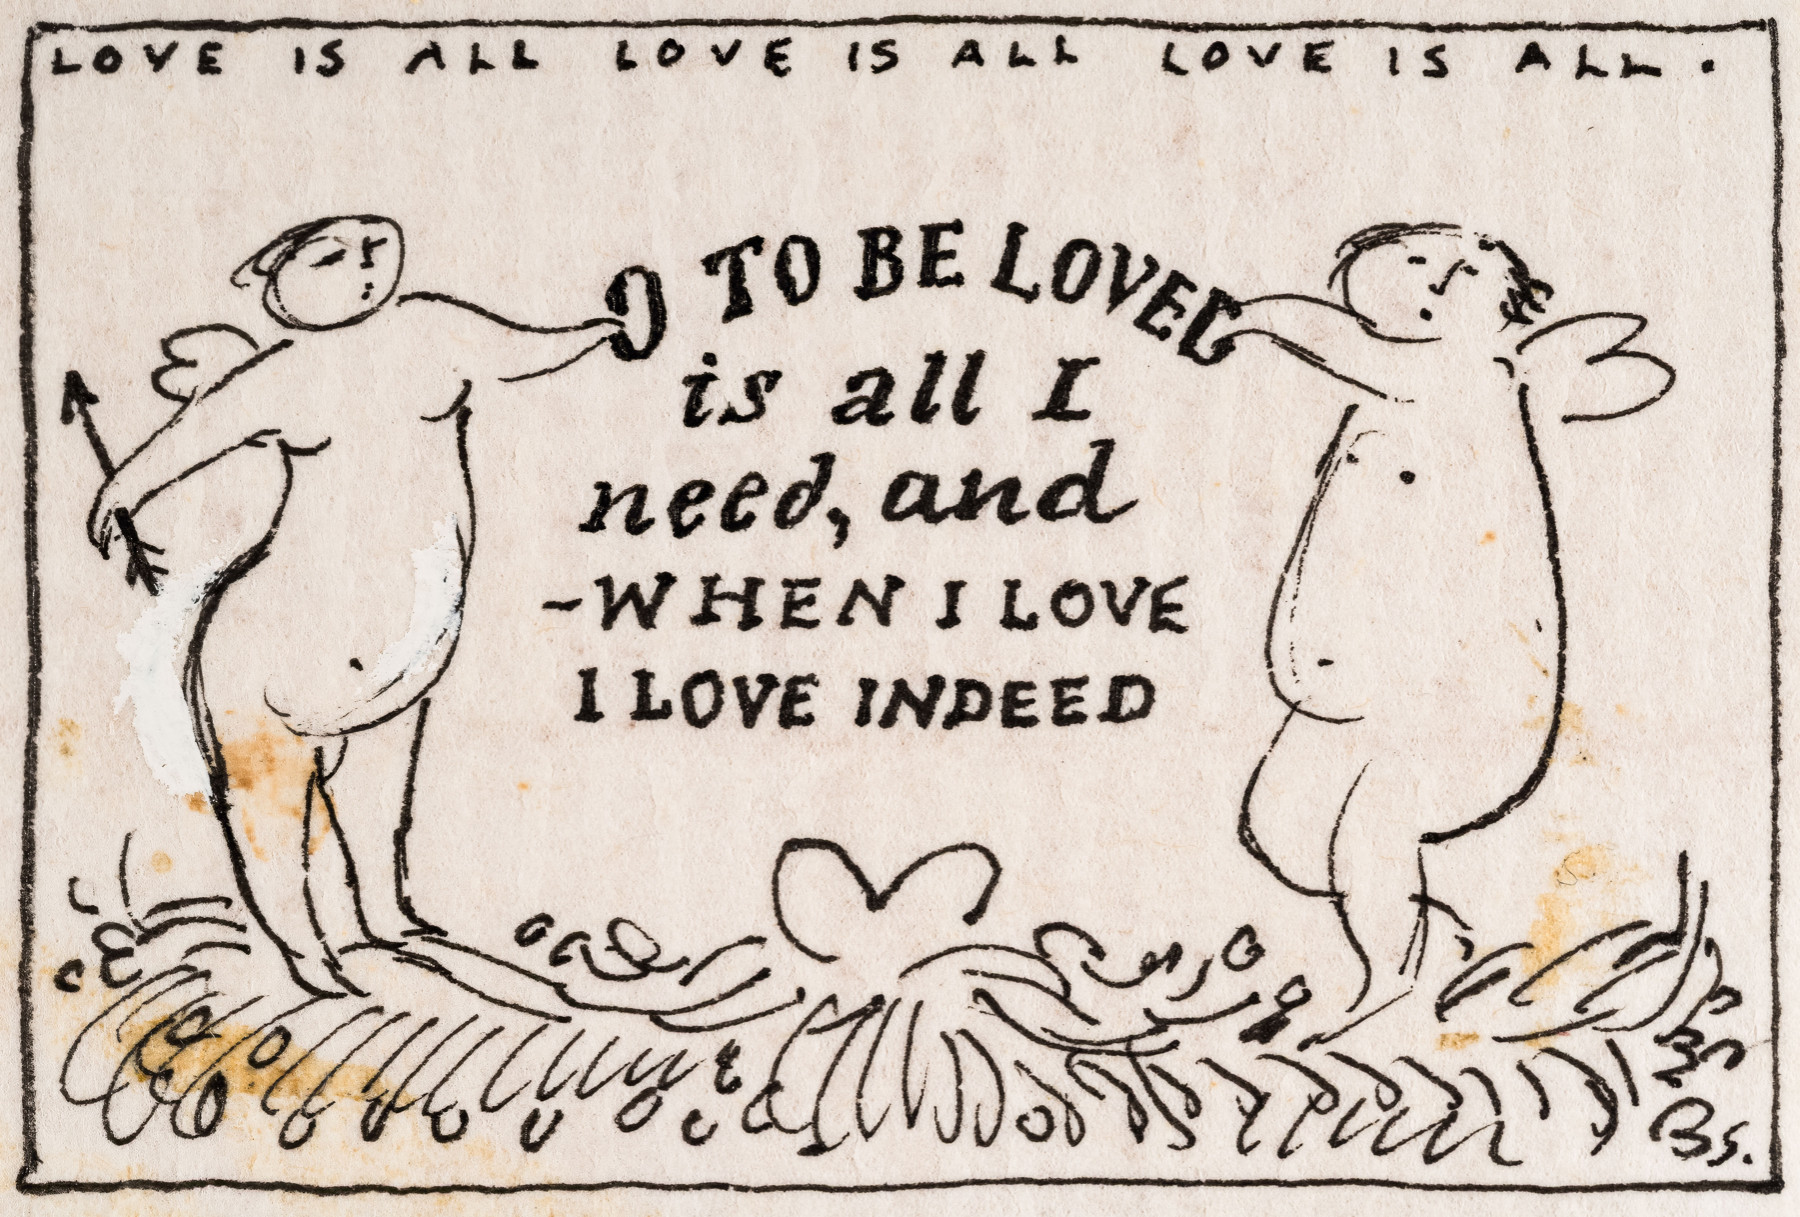 LOVE IS ALL LOVE IS ALL LOVE IS ALL.
O TO BE LOVED
is all I
need, and
-WHEN I LOVE
I LOVE INDEED
BS.